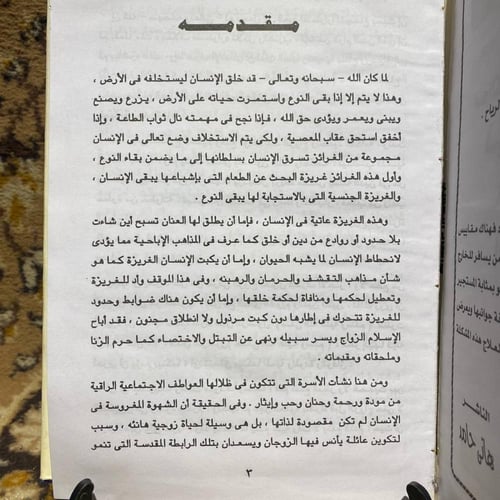 مقدمه
لما كان الله – سبحانه وتعالى – قد خلق الإنسان ليستخلفه فى الأرض ،
وهذا لا يتم إلا إذا بقى النوع واستمرت حياته على الأرض ، يزرع ويصنع
ويبنى ويعمر ويؤدى حق الله ، فإذا نجح فى مهمته نال ثواب الطاعة ، وإذا
أخفق استحق عقاب المعصية ، ولكى يتم الاستخلاف وضع تعالى فى الإنسان
مجموعة من الغرائز تسوق الإنسان بسلطانها إلى ما يضمن بقاء النوع ،
وأول هذه الغرائز غريزة البحث عن الطعام التى بإشباعها يبقى الإنسان ،
والغريزة الجنسية التى بالاستجابة لها يبقى النوع .
وهذه الغريزة عاتية فى الإنسان ، فإما أن يطلق لها العنان تسبح أين شاءت
بلا حدود أو روادع من دين أو خلق كما عرف فى المذاهب الإباحية مما يؤدى
لانحطاط الإنسان لما يشبه الحيوان ، وإما أن يكبت الإنسان الغريزة كما هو
شأن مذاهب التقشف والحرمان والرهبنه ، وفى هذا الموقف وأد للغريزة
وتعطيل لحكمها ومنافاة لحكمة خلقها ، وإما أن يكون هناك ضوابط وحدود
للغريزة تتحرك فى إطارها دون كبت مرذول ولا انطلاق مجنون ، فقد أباح
الإسلام الزواج ويسر سبيله ونهى عن التبتل والاختصاء كما حرم الزنا
وملحقاته ومقدماته .
ومن هنا نشأت الأسرة التى تتكون فى ظلالها العواطف الاجتماعية الراقية
من مودة ورحمة وحنان وحب وإيثار . وفى الحقيقة أن الشهوة المغروسة فى
الإنسان لم تكن مقصودة لذاتها ، بل هى وسيلة لحياة زوجية هانئه ، وسبب
لتكوين عائلة يأنس فيها الزوجان ويسعدان بتلك الرابطة المقدسة التى تنمو
٣
الرياح .
فهناك مقاييس
من يسافر للخارج
بمثابة المستجير
جوانبها ويعرض
لعلاج هذه المشكلة
الناشر